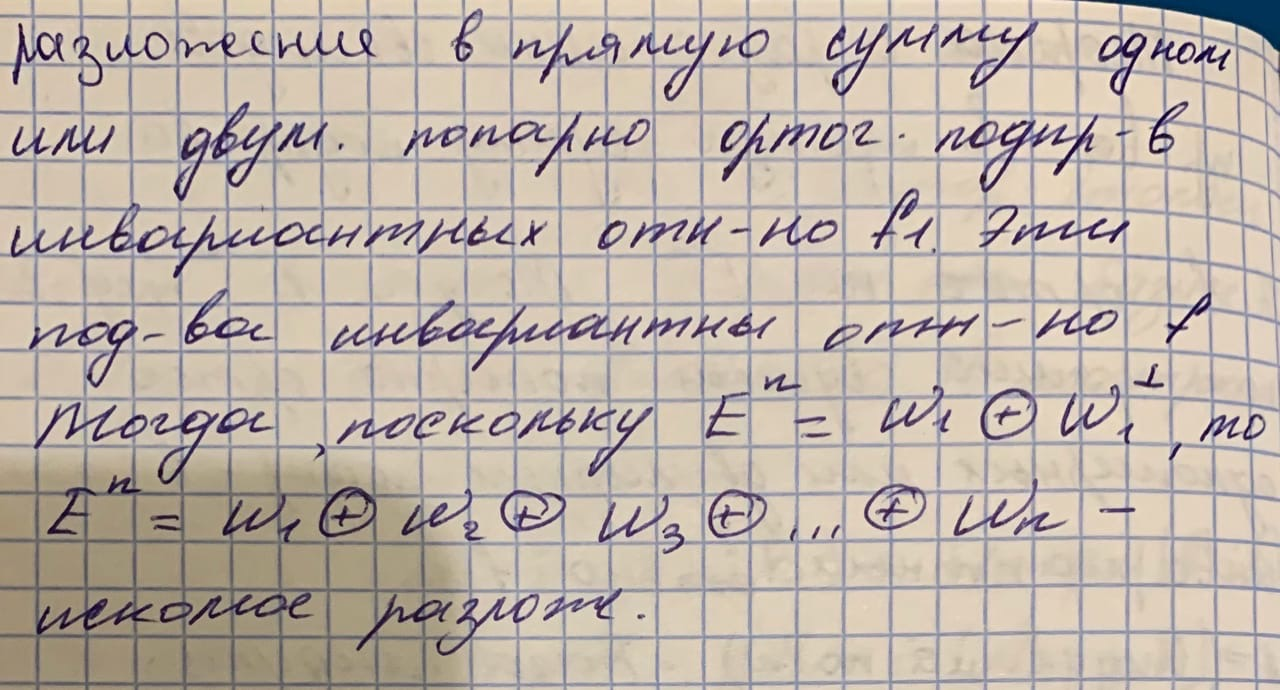 разложение в прямую сумму одном
или двум. попарно ортог. подпр-в
инвариантных отн-но f1. Эти
под-ва инвариантны отн-но f
Тогда, поскольку Eⁿ = W₁ ⊕ W₁^⊥, то
Eⁿ = W₁ ⊕ W₂ ⊕ W₃ ⊕ ... ⊕ Wₖ –
искомое разлож.